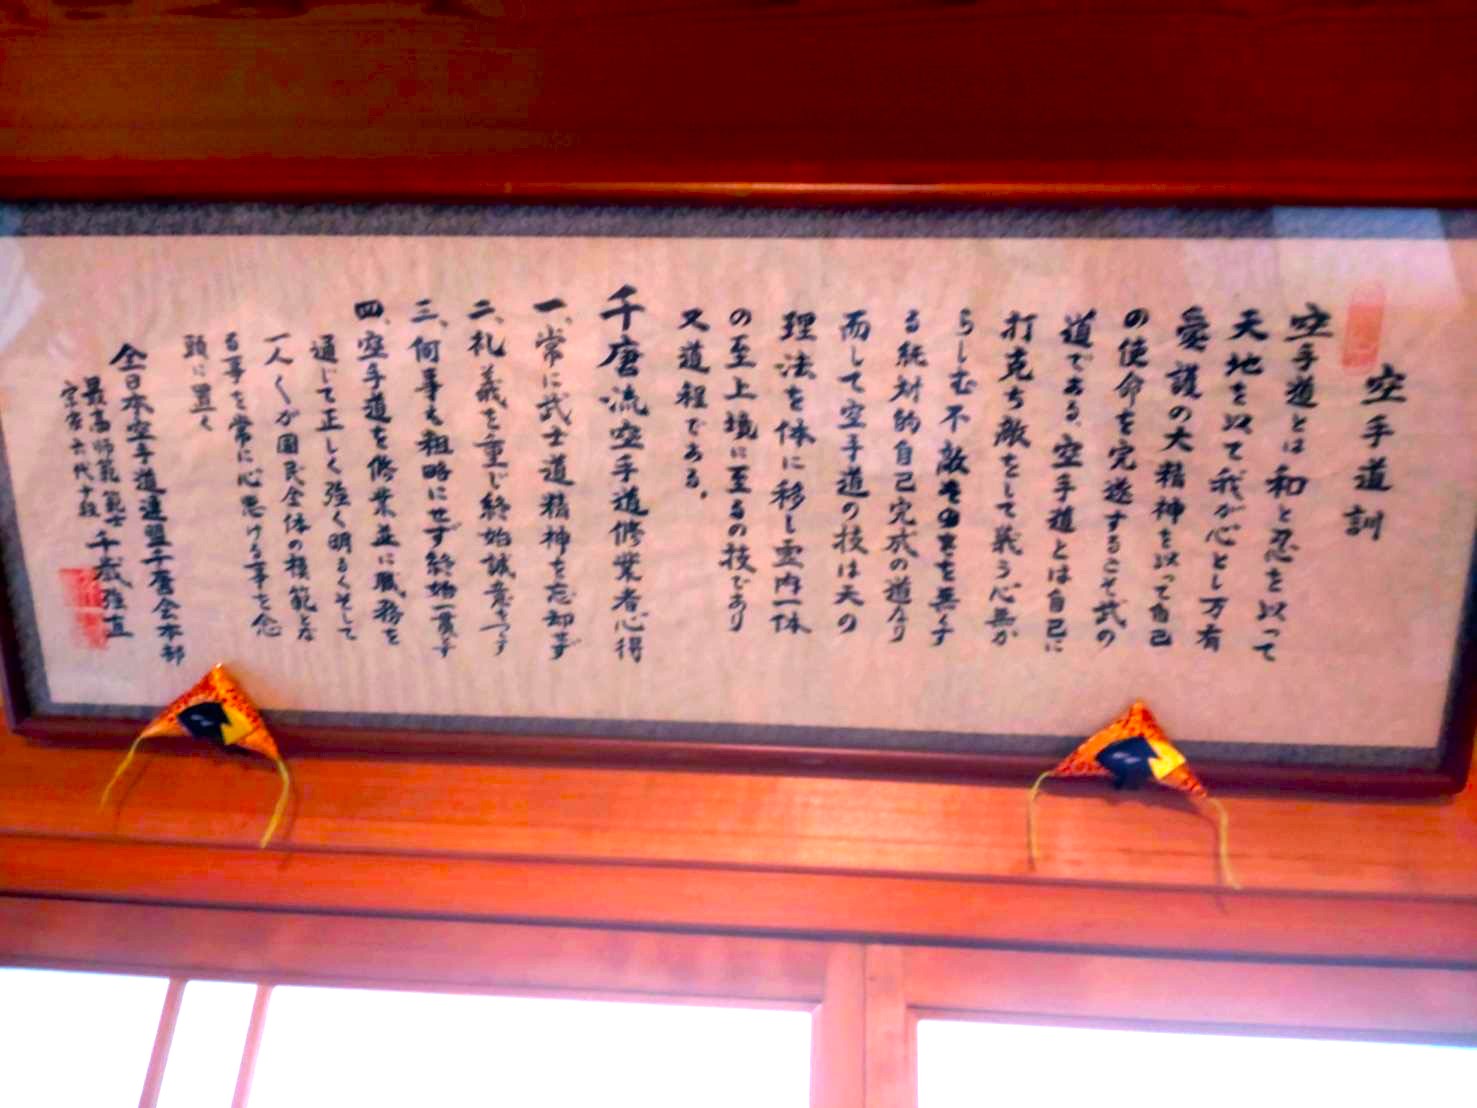 空手道訓
空手道とは和と忍を以って
天地を以て我が心とし万有
愛護の大精神を以って自己
の使命を完遂するこそ武の
道である、空手道とは自己に
打克ち敵をして戦う心無か
らしむ不敵そのまを無くす
る絶対的自己完成の道なり
而して空手道の技は天の
理法を体に移し霊肉一体
の至上境に至るの技であり
又道程である。
千唐流空手道修業者心得
一、常に武士道精神を忘却せず
二、礼義を重じ終始誠意をつくす
三、何事も粗略にせず終始一貫す
四、空手道を修業並に職務を
通じて正しく強く明るくそして
一人〱が国民全体の模範とな
る事を常に心懸ける事を念
頭に置く
全日本空手道連盟千唐会本部
最高師範範士千歳強直
宗家六代十段